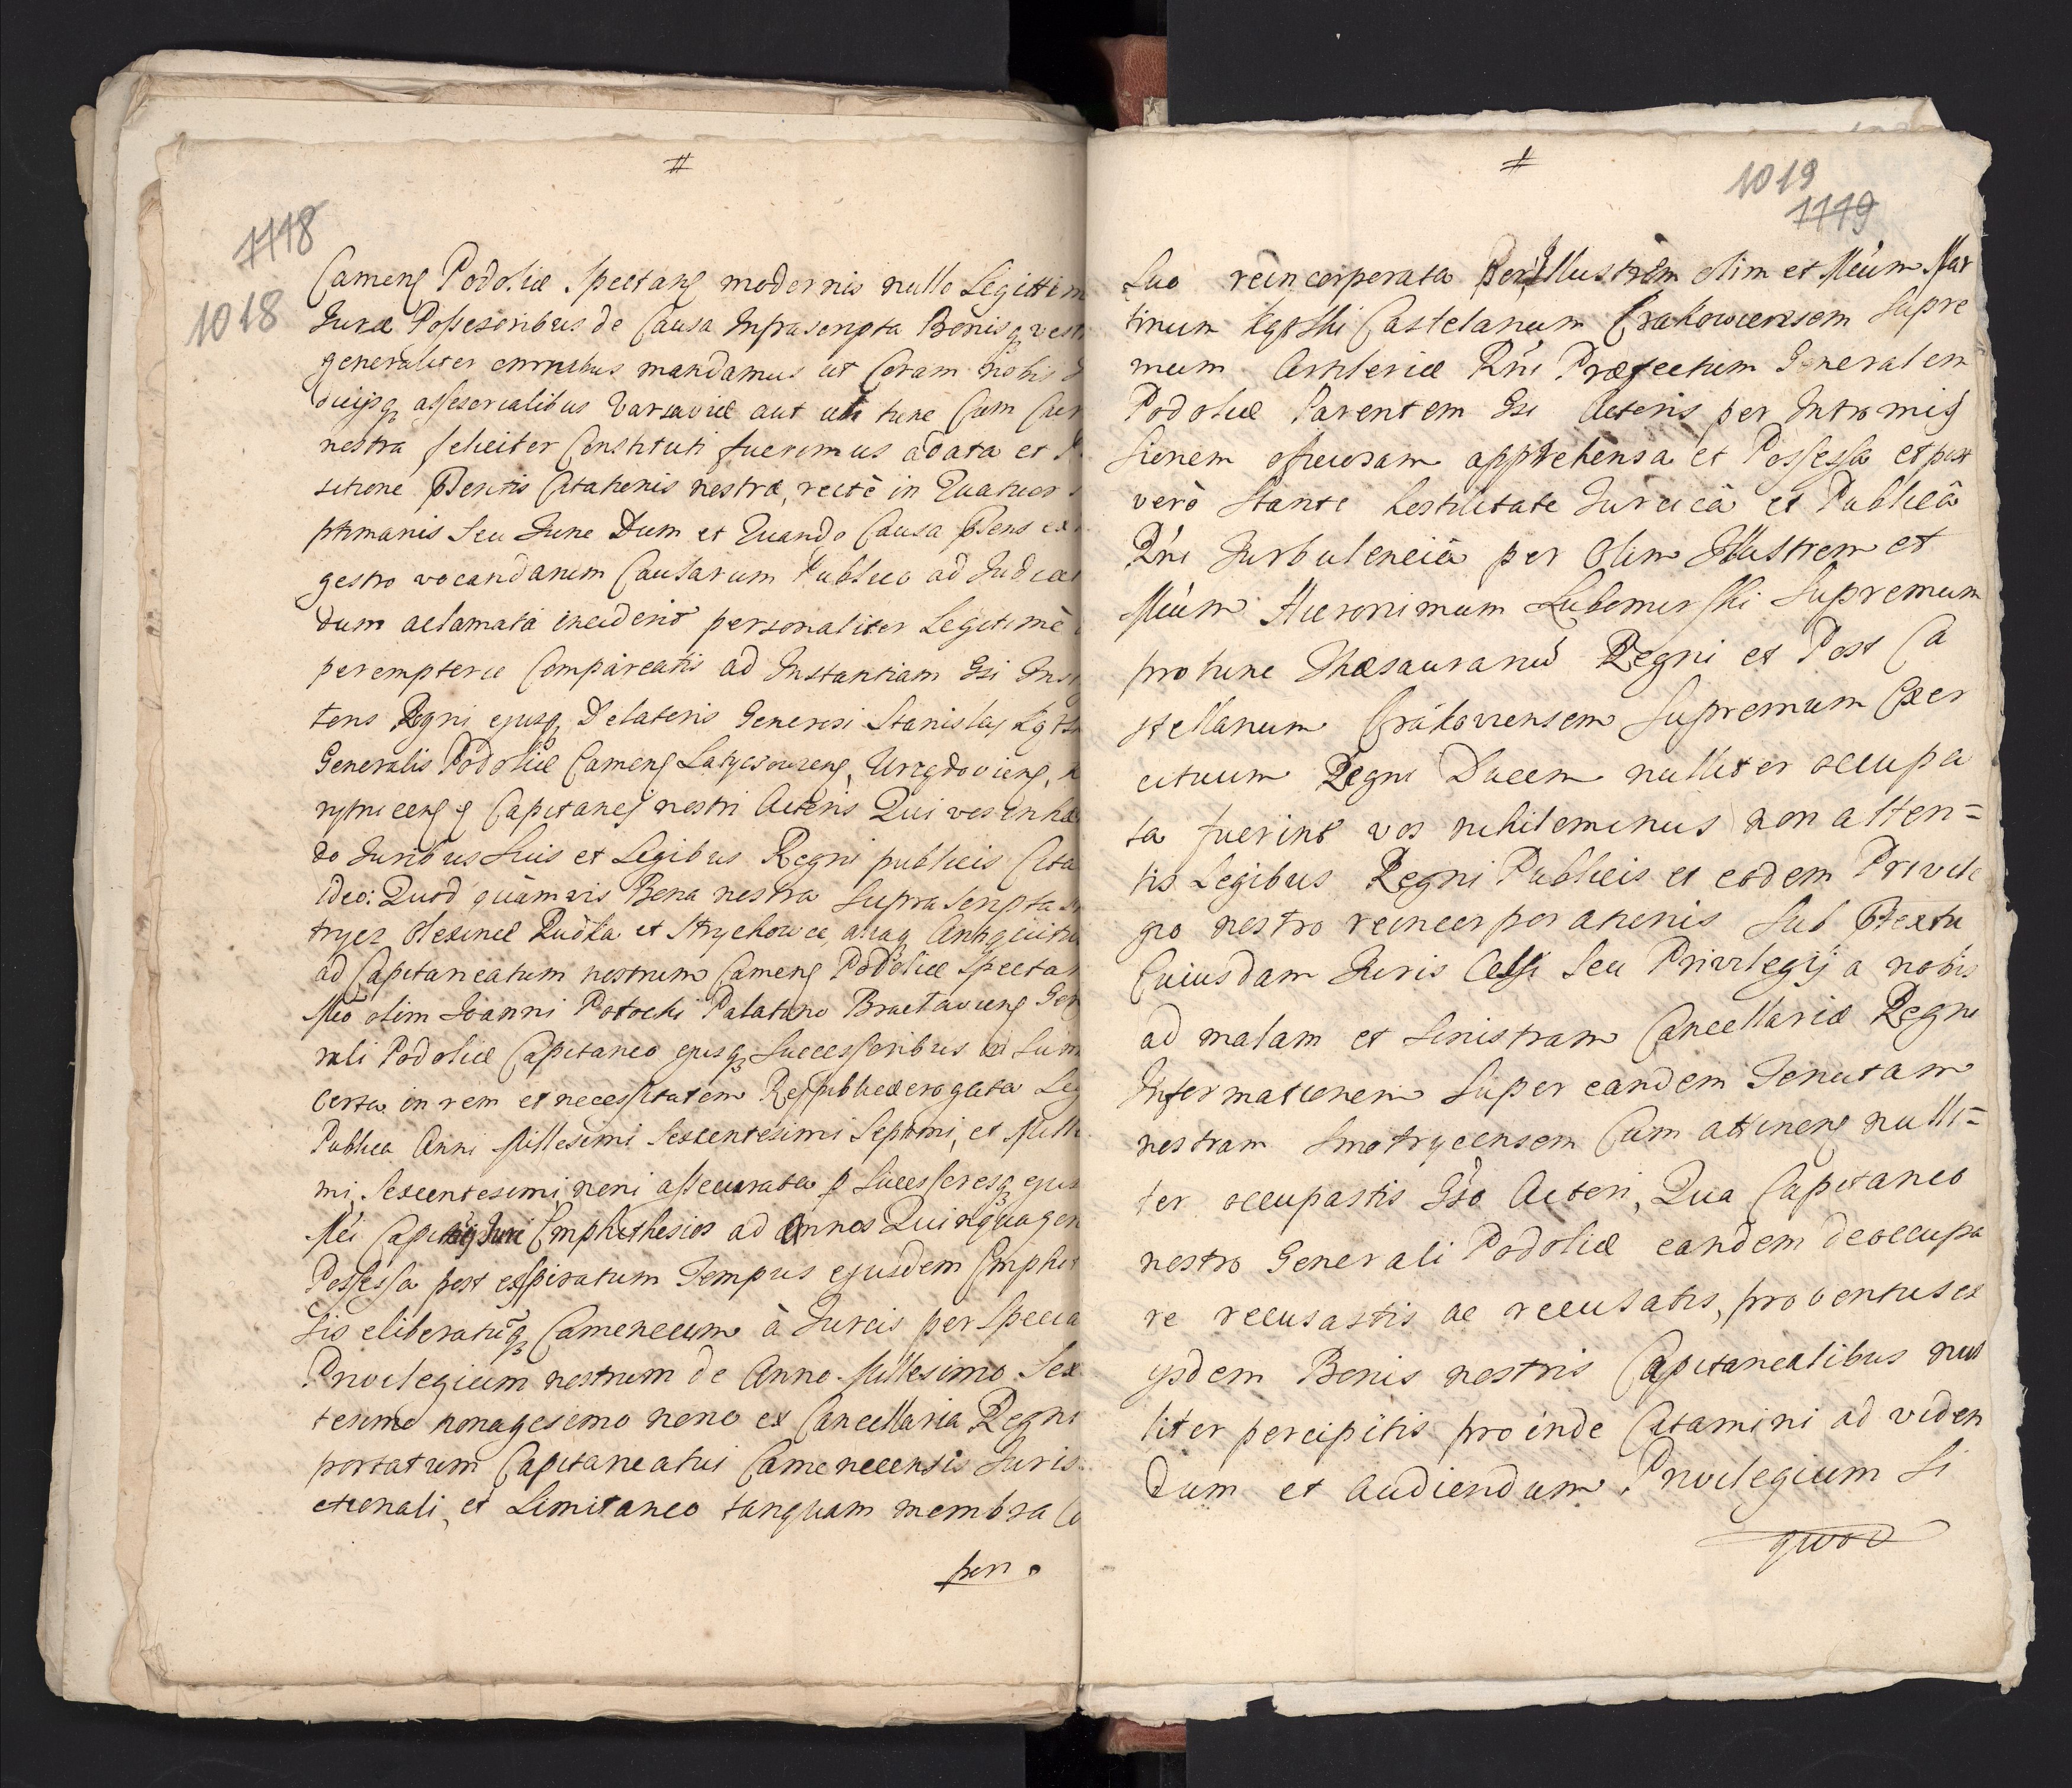 #
1118
1018
Cameneṉ Podoliæ Spectaṉ modernis nullo Legittim
Juræ Possesoribus de Causa Infrascripta Bonisq3 vestr
generaliter omnibus mandamus ut Coram nobis
dicijsq3 assesorialibus Varsaviæ aut ubi tunc Cum Cur
nostra feliciter Constituti fuerimus adata et
sitione Pñtis Citationis nostræ, recte in Quatuor
ptimanis Seu Tunc Dum et Quando Causa Pñens ex
gestro vocandarum Causarum Publico ad Judican
dum aclamata inciderit personaliter Legitimè
peremptorie Compareatis ad Instantiam Gsi Ins
toris Regni ejusq3 Delatoris Generosi Stanislaj Kqts
Generalis Podoliæ Cameneṉ Latyczowieṉ, Urzędovieṉ,
Capitanej nostri Actoris Qui vos inhæ
do Juribus Suis et Legibus Regni publicis Cita
ideo: Quod quàmvis Bona nostra Suprascripta
trycz Olexiniec Rudka et Strychowce, aliaq3 Antiquitus
ad Capitaneatum nostrum Cameneṉ Podoliæ Spectan
Mco olim Joanni Potocki Palatino Braclavieṉ Gen
rali Podoliæ Capitaneo ejusq3 Successoribus ad Sum
certa in rem et necessitatem Reipublicæ erogata Leg
Publica Anni Millesimi Sexcentesimi Septimi, et Mille
mi, Sexcentesimi noni assecurata p Successoresq3 ejus
Mci Capitanij Juri Emphithesios ad Annos Quinquagen
Possessa post exspiratum Tempus ejusdem Emphit
sis eliberatũq3 Camenecum à Turcis per Specia
Privilegium nostrum de Anno Millesimo Sex
tesimo nonagesimo nono ex Cancellaria Regni
portatum Capitaneatui Camenecensis Juris
ctionali, et Limitaneo tanquam membra Co
pori.
#
1019
1119
Suo reincorporata Perillustrem olim et Mcúm Mar
tinum Kątski Castelanum Crakowiensem Supre
mum Artileriæ Rni Præfectum Generalem
Podoliæ Parentem Gsi Actoris per Intromis
sionem oficiosam apprehensa et Possessa et post
verò Stante hostilitate Turcicâ et Publicâ
Rni Turbulenciâ per Olim Illustrem et
Mcúm Hieronimum Lubomirski Supremum
pro tunc Thæsaurariũ Regni et Post Ca
stellanum Crákoviensem Supremum Exer
cituum Regni Ducem nulliter occupa
ta fuerint vos nihilominus non atten=
tis Legibus Regni Publicis et eodem Privile
gio nostro reincorporationis Sub Ptextu
Cuiusdam Juris Cessi Seu Privilegij a nobis
ad malam et sinistram Cancellariæ Regni
Informationem Super eandem Tenutam
nostram Smotrycensem Cum attineṉ nulli=
ter occupastis Gso Actori, Qua Capitaneo
nostro Generali Podoliæ eandem deoccupa
re recusastis ac recusatis, proventus ex
ijsdem Bonis nostris Capitanealibus nul
liter percipitis proinde Citamini ad viden
dum et audiendum, Privilegium Si
quod